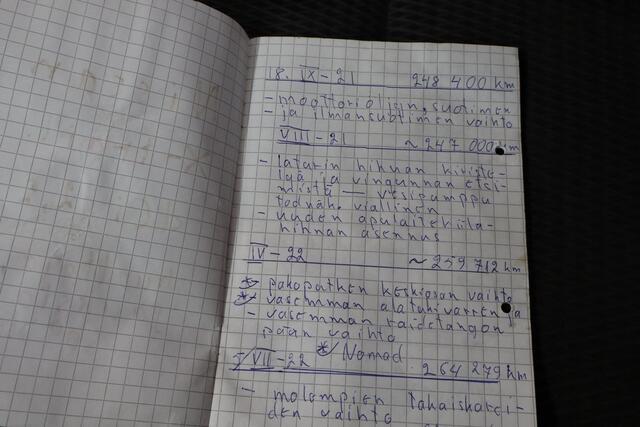 18. IX-21 248 400 km
- moottoriöljyn, suotimen
- ja ilmansuotimen vaihto
VIII-21 ~247 000 km
- laturin hihnan kiriste-
lyä ja vingunnan etsi-
mistä — vesipumppu
todnäk. viallinen
- uuden apulaitekiila-
hihnan asennus
IV-22 ~259 712 km
* pakoputken keskiosan vaihto
* vasemman alatukivarren ja
- vasemman raidetangon
pään vaihto
* Nomad
VII-22 264 279 km
- molempien takaiskarei-
den vaihto